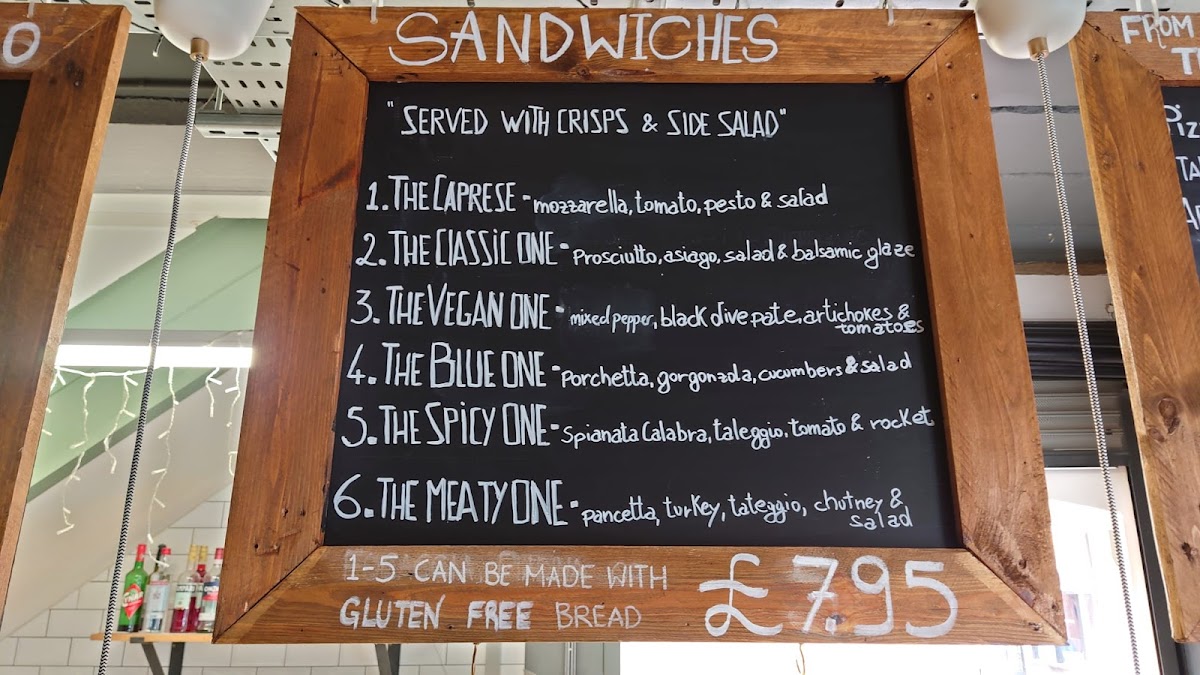 O
SANDWICHES
"SERVED WITH CRISPS & SIDE SALAD"
1. THE CAPRESE - mozzarella, tomato, pesto & salad
2. THE CLASSIC ONE - Prosciutto, asiago, salad & balsamic glaze
3. THE VEGAN ONE - mixed pepper, black olive pate, artichokes &
tomatoes
4. THE BLUE ONE - porchetta, gorgonzola, cucumbers & salad
5. THE SPICY ONE - Spianata Calabra, taleggio, tomato & rocket
6. THE MEATY ONE - pancetta, turkey, taleggio, chutney &
salad
1-5 CAN BE MADE WITH
GLUTEN FREE BREAD
£7.95
FROM